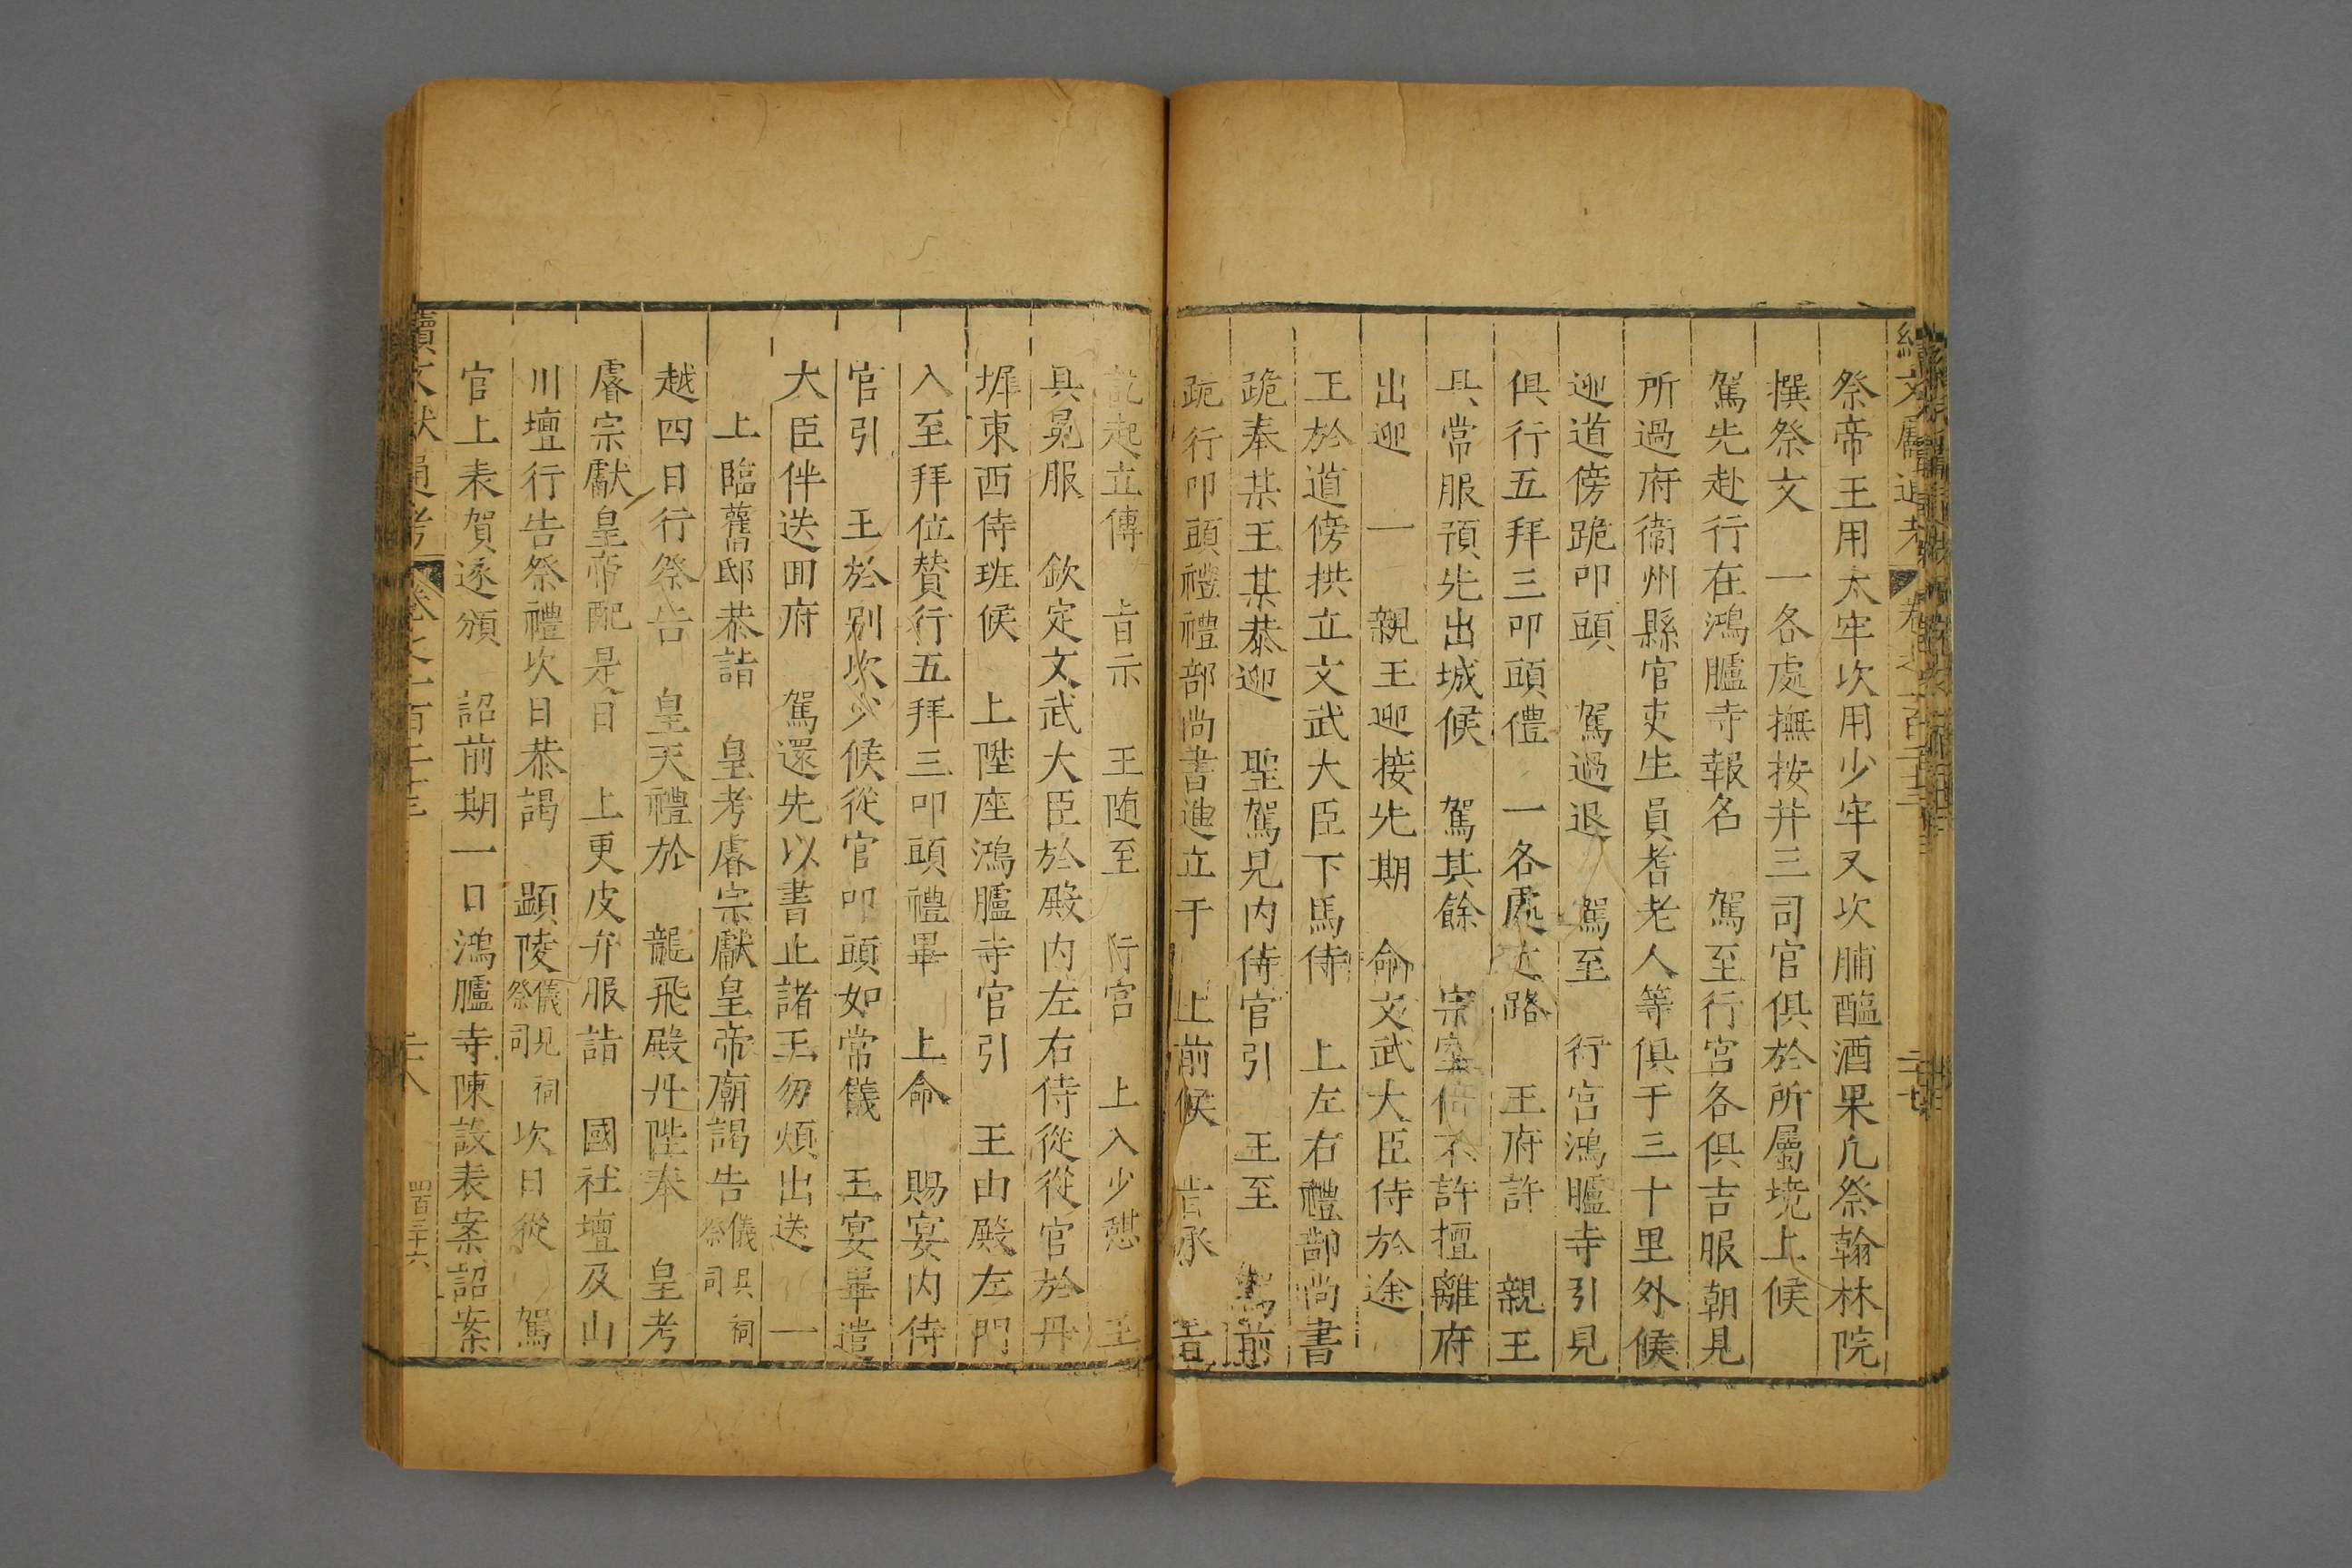 續文獻通考 卷之一百二十三 二十七
祭帝王用太牢次用少牢又次脯醢酒果凡祭翰林院
撰祭文 一各處撫按并三司官俱於所屬境上候
駕先赴行在鴻臚寺報名 駕至行宮各俱吉服朝見
所過府衞州縣官吏生員耆老人等俱于三十里外候
迎道傍跪叩頭 駕過退 駕至 行宮鴻臚寺引見
俱行五拜三叩頭禮 一各處 路 王府許 親王
具常服預先出城候 駕其餘 宗室 不許擅離府
出迎 一 親王迎接先期 命文武大臣侍於途
王於道傍拱立文武大臣下馬侍 上左右禮部尚書
跪奉某王某恭迎 聖駕見内侍官引 王至 駕前
跪行叩頭禮禮部尚書進立于 上前候 旨承 旨
說起立傳 旨示 王随至 行宮 上入少憇 王
具冕服 欽定文武大臣於殿内左右侍從從官於丹
墀東西侍班候 上陞座鴻臚寺官引 王由殿左門
入至拜位贊行五拜三叩頭禮畢 上命 賜宴内侍
官引 王於别次少候從官叩頭如常儀 王宴畢遣
大臣伴送囬府 駕還先以書止諸王勿煩出送 一
上臨舊邸恭詣 皇考睿宗獻皇帝廟謁告儀具祠祭司
越四日行祭告 皇天禮於 龍飛殿丹陛奉 皇考
睿宗獻皇帝配是日 上更皮弁服詣 國社壇及山
川壇行告祭禮次日恭謁 顯陵儀見祠祭司 次日從 駕
官上表賀遂頒 詔前期一日鴻臚寺陳設表案詔案
續文獻通考 卷之一百二十三 二十八 四百三十六